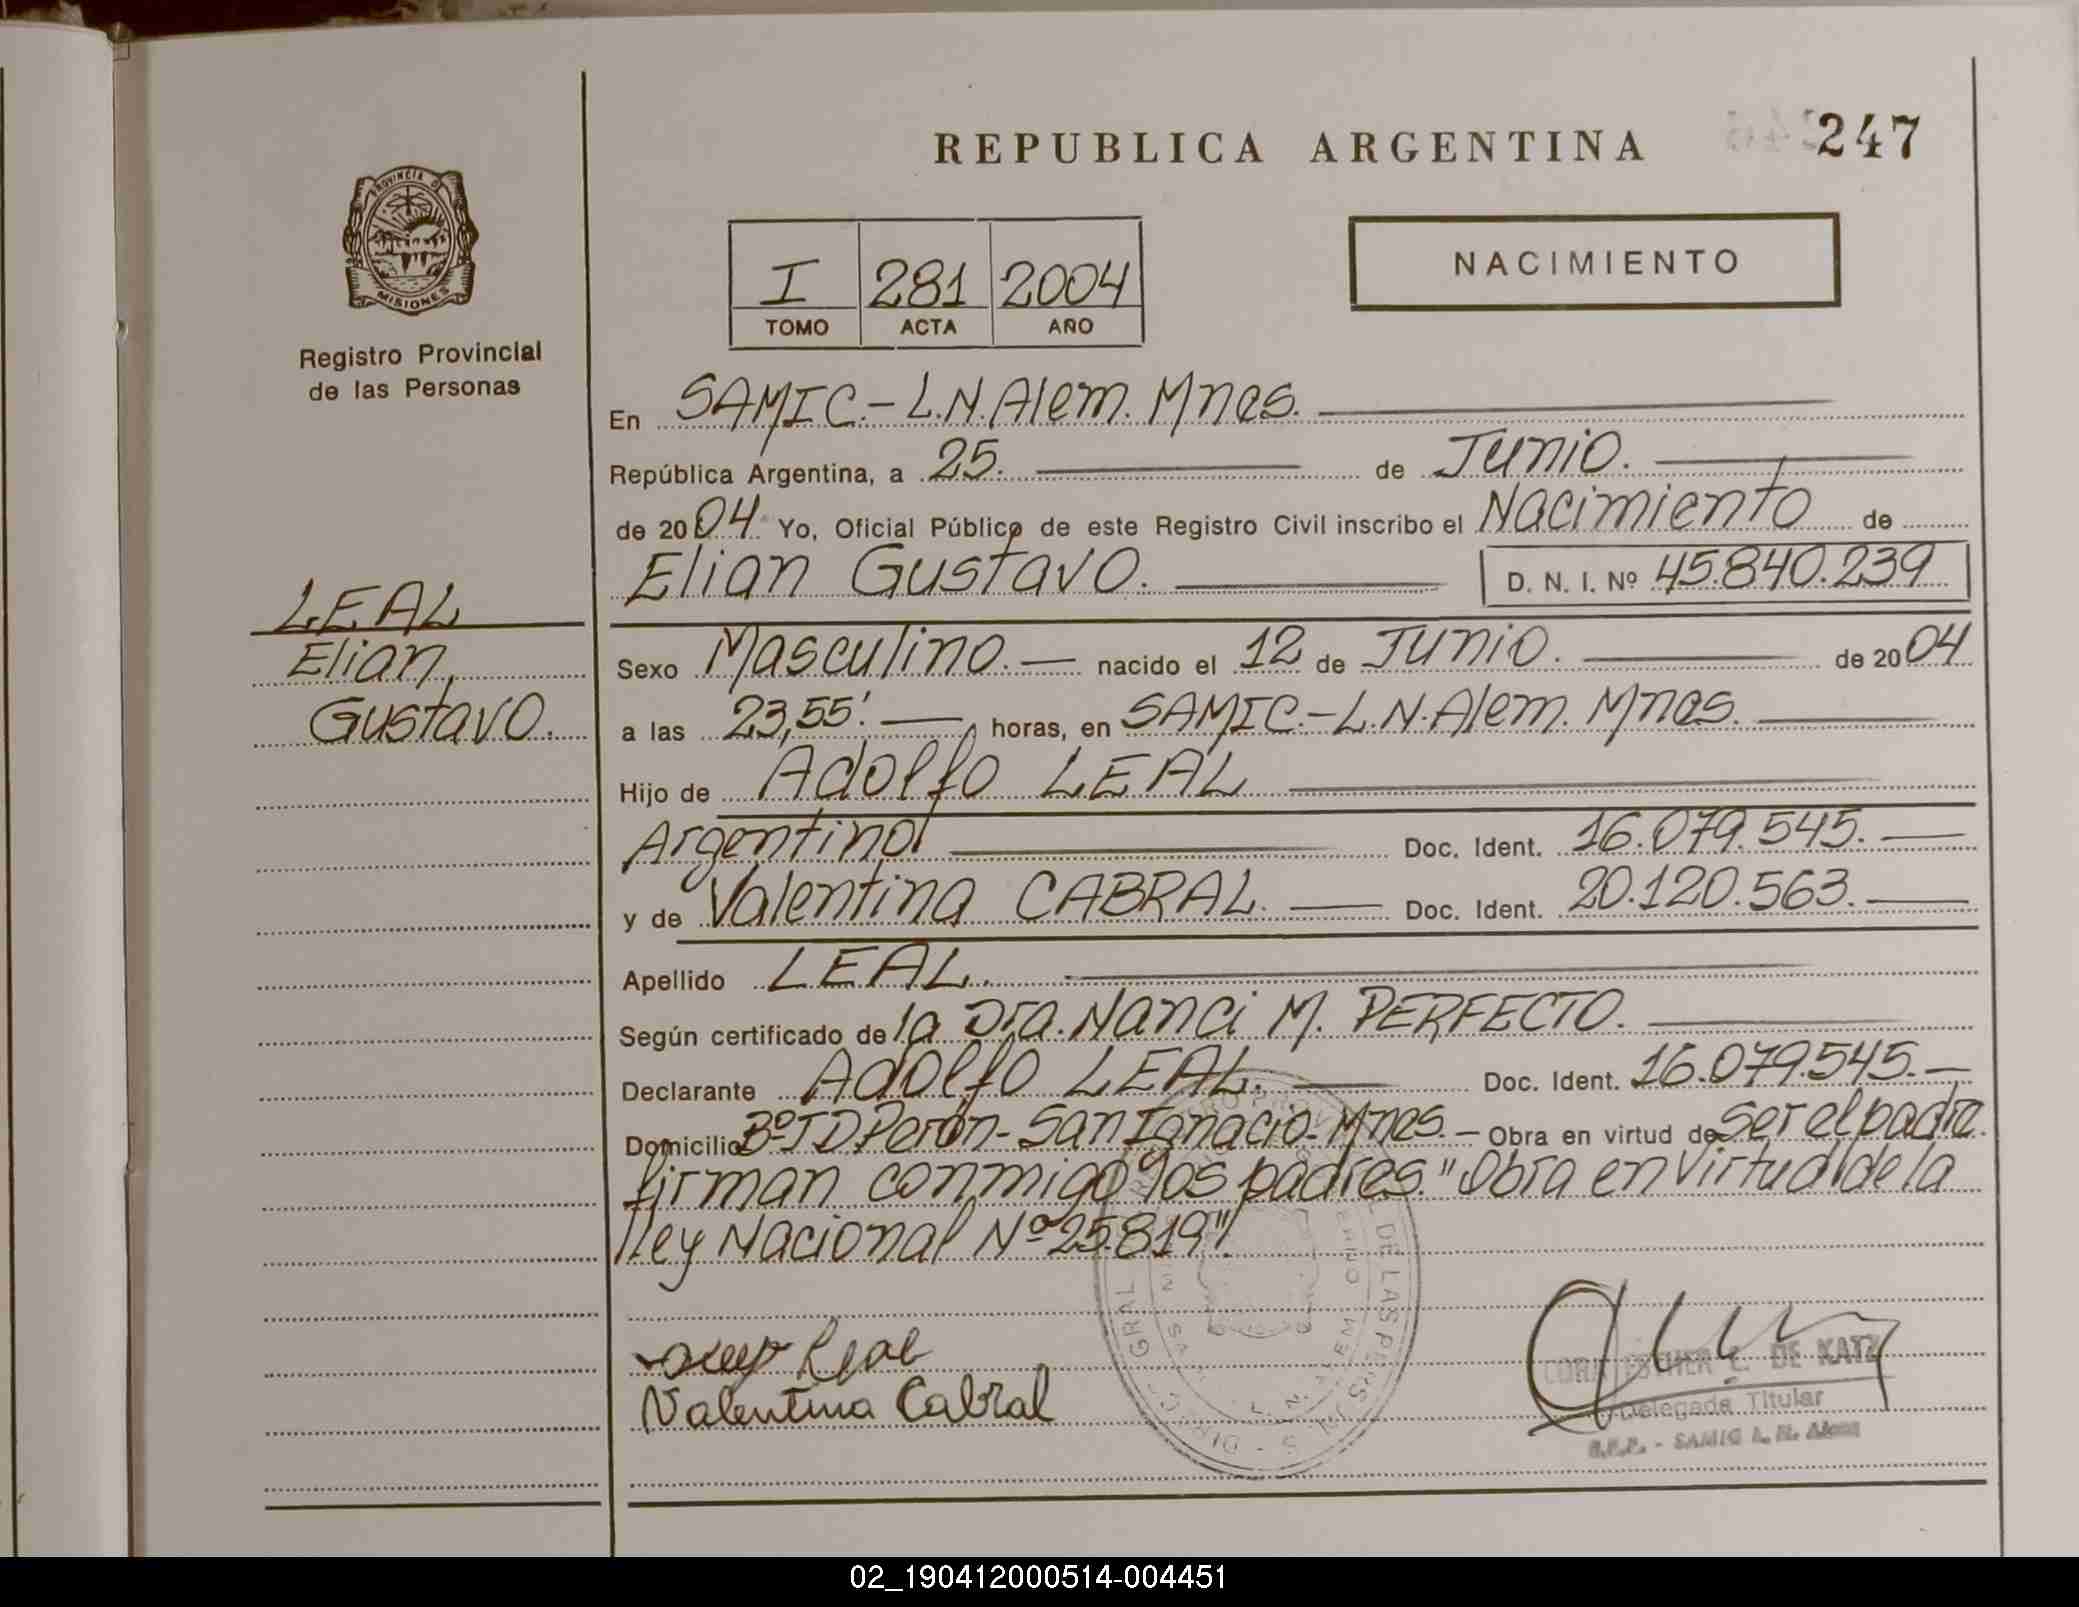 REPUBLICA ARGENTINA
247
PROVINCIA DE
MISIONES
Registro Provincial
de las Personas
I 281 2004
TOMO ACTA AÑO
NACIMIENTO
En SAMIC.- L.N.Alem. Mnes.
República Argentina, a 25. de Junio.
de 2004 Yo, Oficial Público de este Registro Civil inscribo el Nacimiento de
Elian Gustavo. D. N. I. Nº 45.840.239
LEAL
Elian,
Gustavo.
Sexo Masculino. nacido el 12 de Junio. de 2004
a las 23,55'. horas, en SAMIC.- L.N.Alem. Mnes.
Hijo de Adolfo LEAL
Argentino Doc. Ident. 16.079.545.
y de Valentina CABRAL. Doc. Ident. 20.120.563.
Apellido LEAL.
Según certificado de la Dra. Nanci M. PERFECTO.
Declarante Adolfo LEAL. Doc. Ident. 16.079.545.
Domicilio Bº J D Perón - San Ignacio - Mnes. - Obra en virtud de ser el padre.
firman conmigo los padres. "Obra en virtud de la
ley Nacional Nº 25.819".
Leal
Valentina Cabral
ESTHER E. DE KATZ
Delegada Titular
SAMIC L. N. Alem
02_190412000514-004451